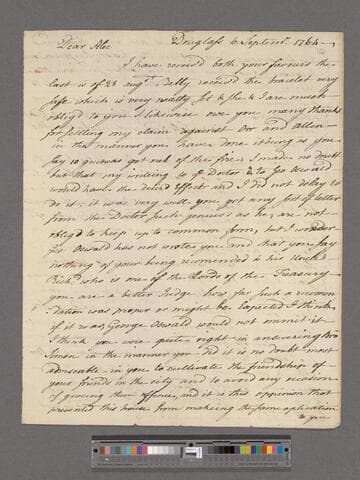 Dear Alec Douglass 6 Septemr. 1764 —
I have receivd both your favours the
last is of 28 augt. Nelly received the bracelet very
safe which is very neatly set & she & I are much
obligd to you I likewise owe you many thanks
for settling my claim against Dor and Allen
in the manner you have done it being as you
say 10 guineas got out of the fire, I made no doubt
but that my writing to ye Doctor & to Geo Oswald
would have the desird Effect and I did not delay to
do it; it was very well you got any sort of letter
from the Doctor, Such geniuss as he, are not
obligd to keep up to common form, but I wonder
Geo: Oswald has not wrote you and that you say
nothing of your being recomended to his Uncle
Richd. who is one of the Lords of the Treasury —
you are a better Judge how far such a recomen
=dation was proper or might be Expected I think
if it was George Oswald would not ommit it —
I think you were quite right in answering Bro
Simon in the manner you did it is no doubt most
adviseable in you to cultivate the friendship of
your friends in the city and to avoid any occasion
of giveing them offence, and it is this oppinion that
prevented this house from makeing the same application
to you